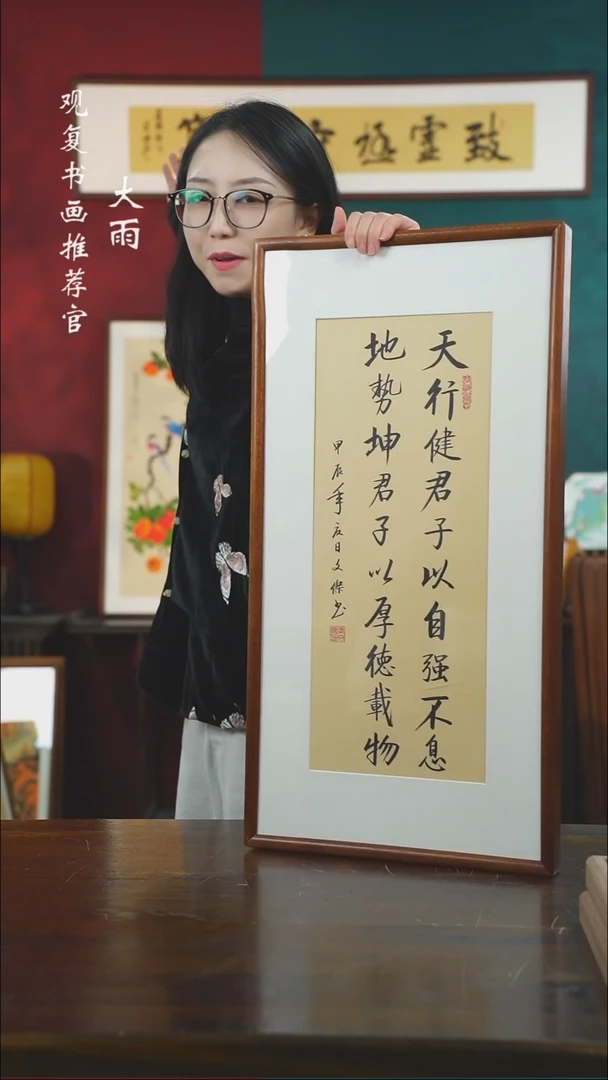 观复书画推荐官
大雨
致虚極
天行健君子以自强不息
地势坤君子以厚德載物
甲辰年夏日文傑书